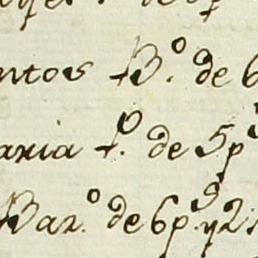 ntos B.º de 6
aria f.º de 5 p
Bar.º de 6 p.s y 2